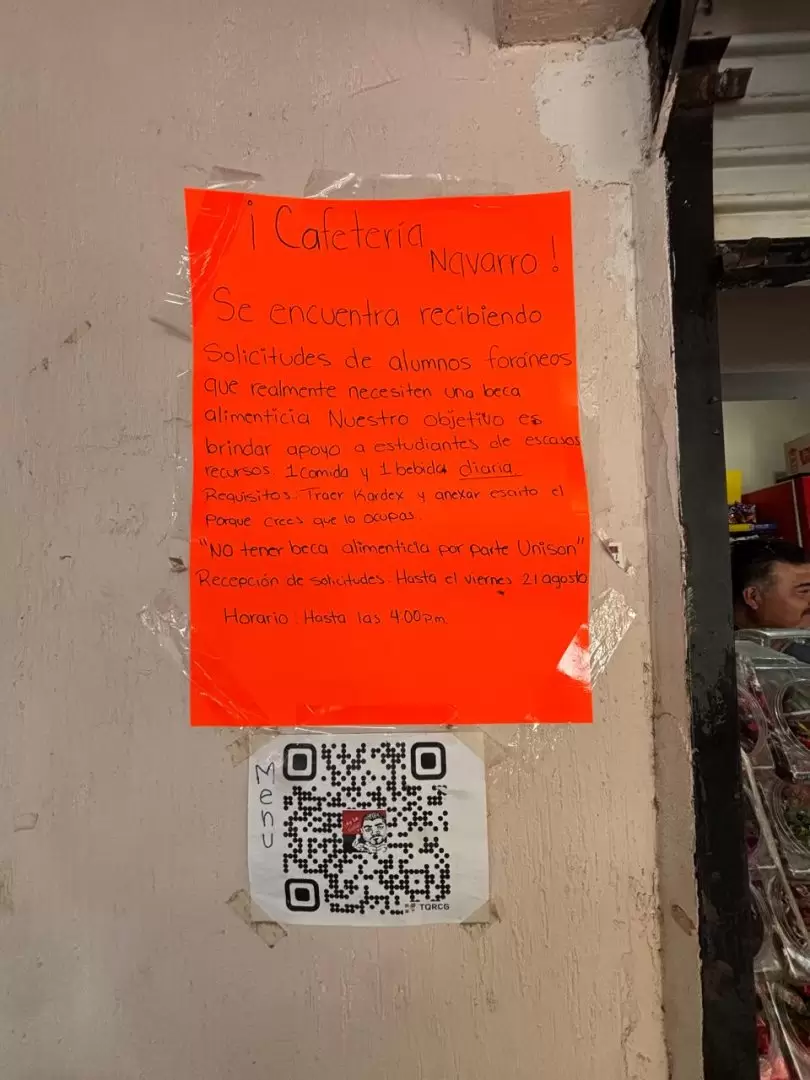 ¡ Cafetería
Navarro !
Se encuentra recibiendo
Solicitudes de alumnos foráneos
que realmente necesiten una beca
alimenticia Nuestro objetivo es
brindar apoyo a estudiantes de escasos
recursos. 1 comida y 1 bebida diaria
Requisitos: Traer Kardex y anexar escrito el
Porque crees que lo ocupas.
"NO tener beca alimenticia por parte Unison"
Recepción de solicitudes: Hasta el viernes 21 agosto
Horario: Hasta las 4:00pm
Menu
TQRCG